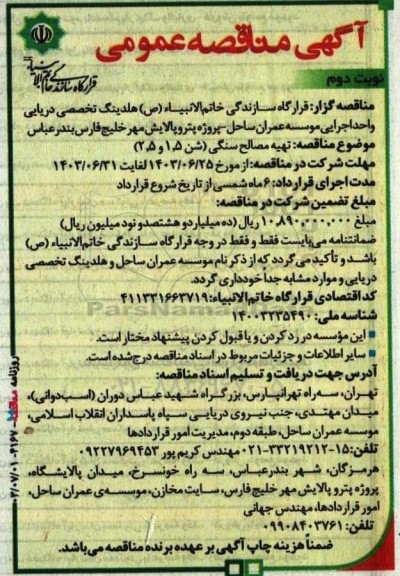 آگهی مناقصه عمومی
قرارگاه سازندگی خاتم الانبیاء
نوبت دوم
مناقصه گزار: قرارگاه سازندگی خاتم‌الانبیاء (ص) هلدینگ تخصصی دریایی
واحد اجرایی موسسه عمران ساحل-پروژه پتروپالایش مهر خلیج فارس بندرعباس
موضوع مناقصه: تهیه مصالح سنگی (شن ۱,۵ و ۲,۵)
مهلت شرکت در مناقصه: از مورخ ۱۴۰۳/۰۶/۲۵ لغایت ۱۴۰۳/۰۶/۳۱
مدت اجرای قرارداد: ۶ ماه شمسی از تاریخ شروع قرارداد
مبلغ تضمین شرکت در مناقصه:
مبلغ ۱۰,۸۹۰,۰۰۰,۰۰۰ ریال (ده میلیارد و هشتصد و نود میلیون ریال)
ضمانتنامه می‌بایست فقط و فقط در وجه قرارگاه سازندگی خاتم‌الانبیاء (ص)
باشد و تأکید می گردد که از ذکر نام موسسه عمران ساحل و هلدینگ تخصصی
دریایی و موارد مشابه جداً خودداری گردد.
کد اقتصادی قرارگاه خاتم‌الانبیاء: ۴۱۱۳۳۱۶۶۳۷۱۹
شناسه ملی: ۱۴۰۰۳۲۳۵۴۹۰
این مؤسسه در رد کردن و یا قبول کردن پیشنهاد مختار است.
سایر اطلاعات و جزئیات مربوط در اسناد مناقصه درج شده است.
آدرس جهت دریافت و تسلیم اسناد مناقصه:
تهران، سه‌راه تهرانپارس، بزرگراه شهید عباس دوران (اسب‌دوانی)،
میدان مهتدی، جنب نیروی دریایی سپاه پاسداران انقلاب اسلامی،
موسسه عمران ساحل، طبقه دوم، مدیریت امور قراردادها
تلفن: ۱۵-۳۳۲۱۹۲۱۲-۰۲۱ مهندس کریم پور ۰۹۲۲۷۹۶۹۴۵۳
هرمزگان، شهر بندرعباس، سه راه خونسرخ، میدان پالایشگاه،
پروژه پترو پالایش مهر خلیج فارس، سایت مخازن، موسسه‌ی عمران ساحل،
امور قراردادها، مهندس جهانی
تلفن: ۰۹۹۰۸۴۰۳۷۶۱
ضمناً هزینه چاپ آگهی بر عهده برنده مناقصه می‌باشد.
روزنامه مناقصه ۴۱۶۷-۳/۰۷/۰۱